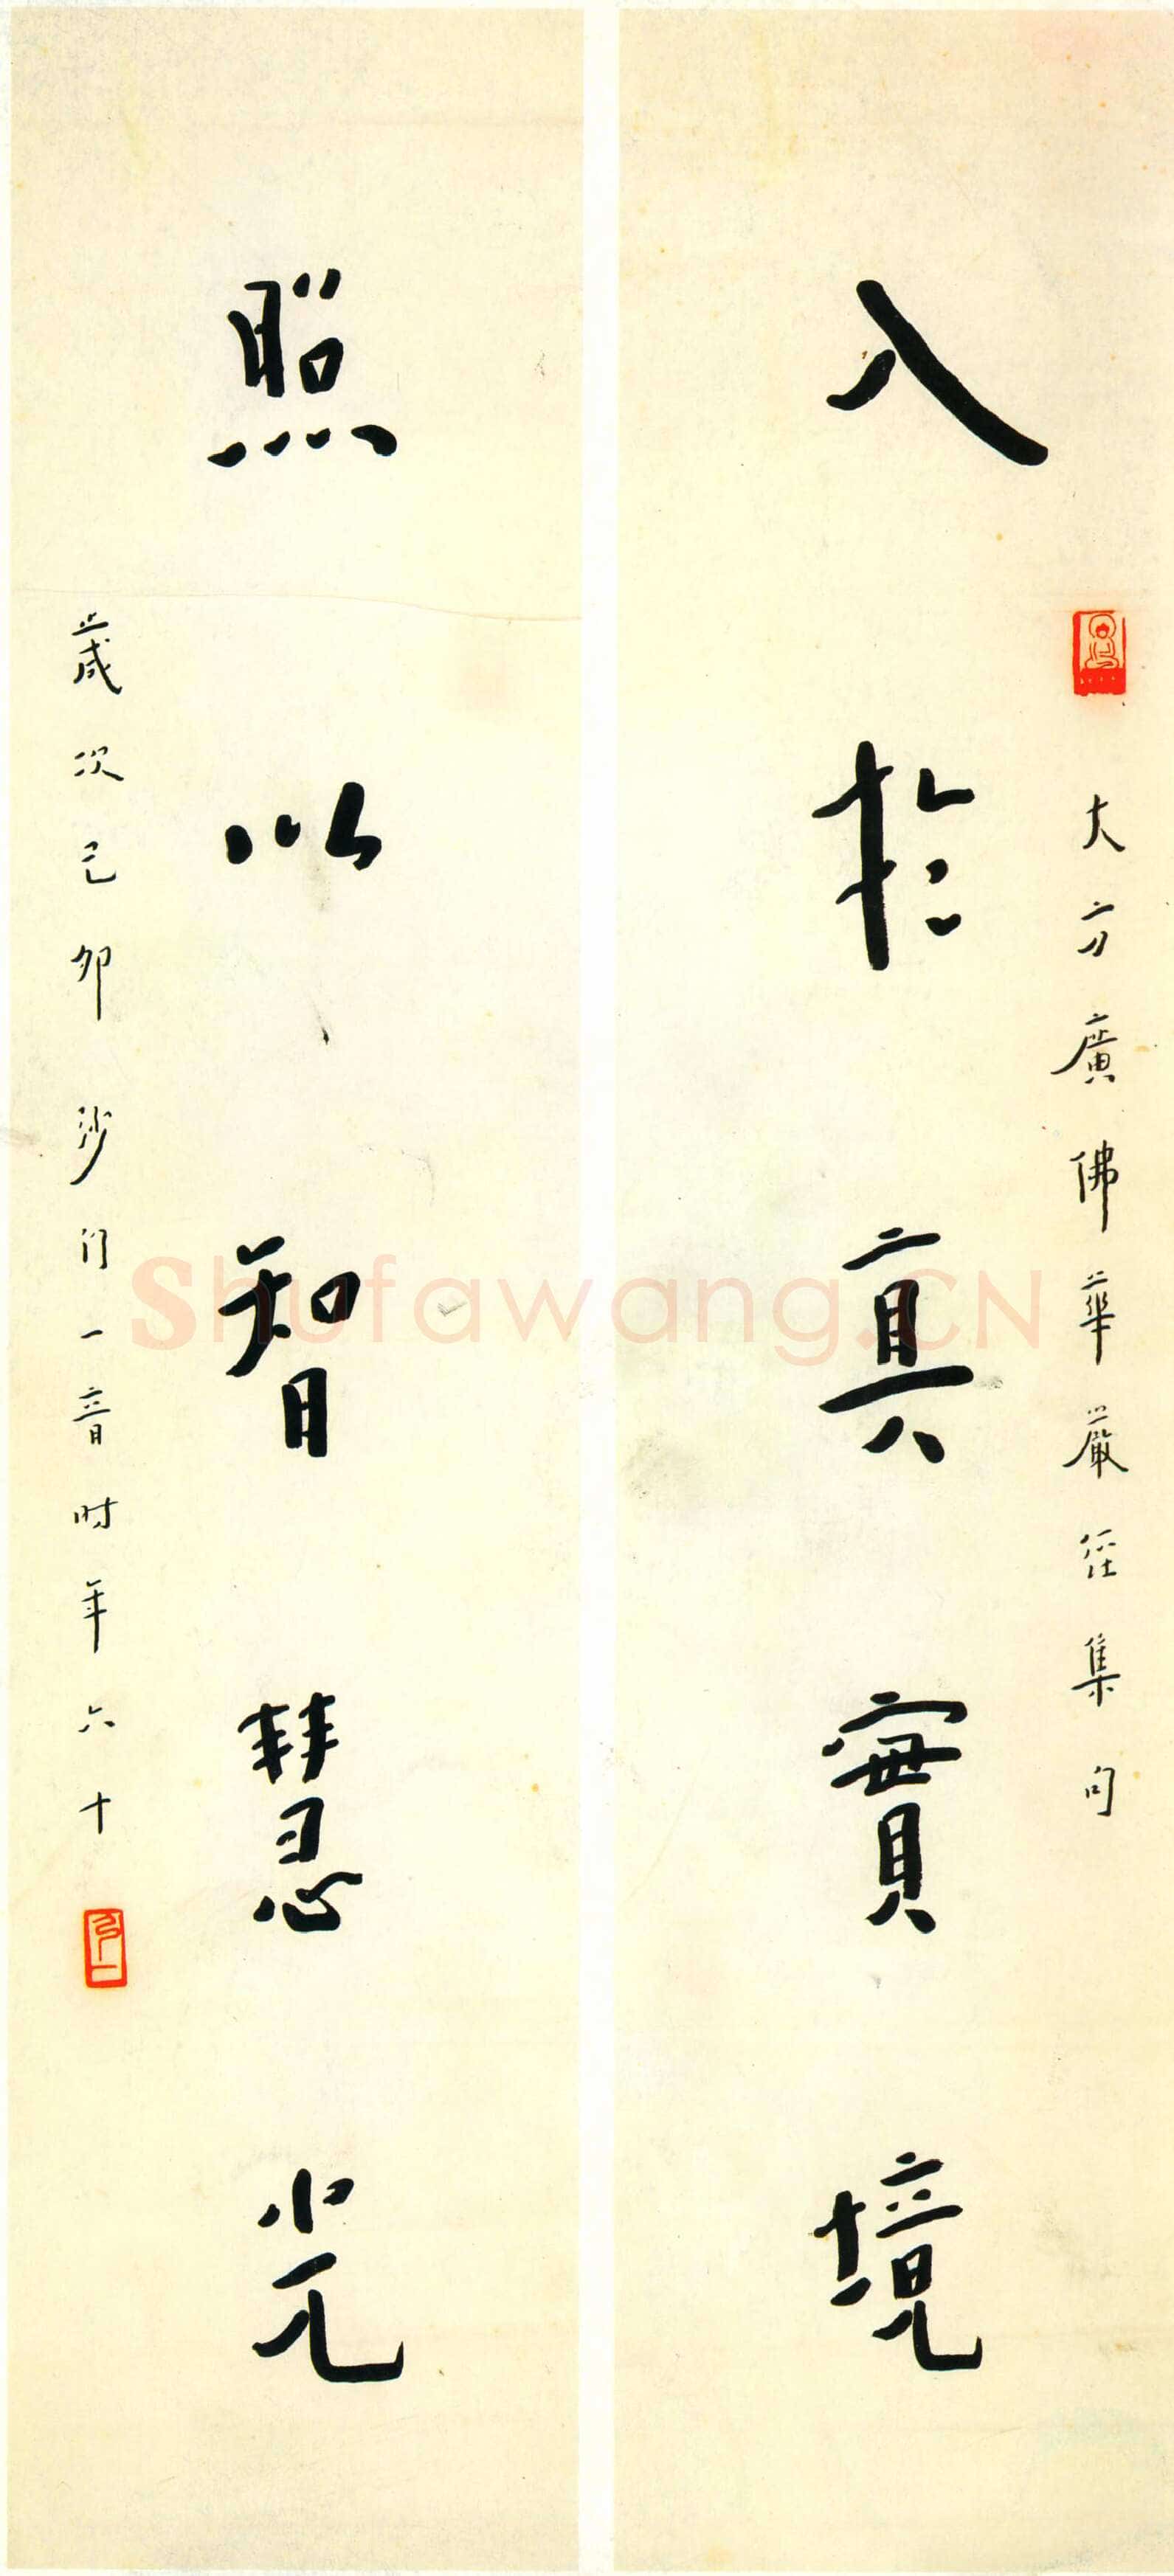 大方廣佛華嚴経集句
入於真實境
照以智慧光
歲次己卯沙门一音时年六十
Shufawang.CN